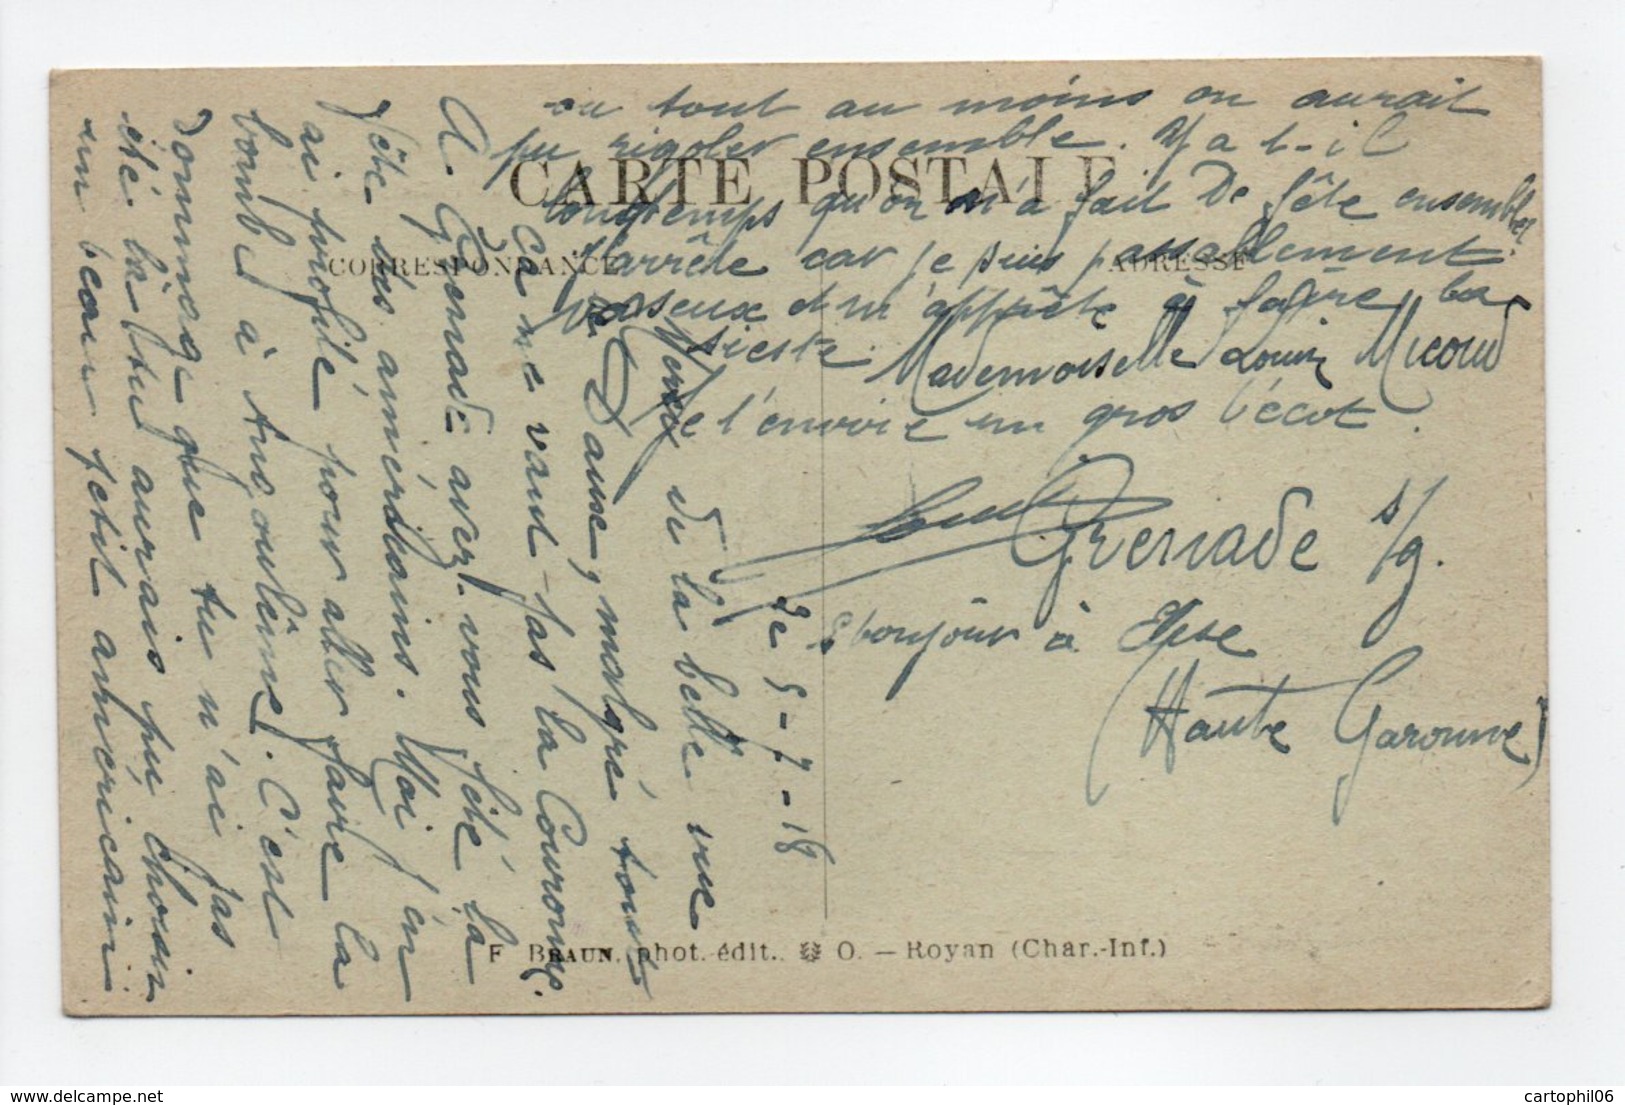 le 5-7-18
Merci de la belle vue
de Dause, malgré tout
ça ne vaut pas la Couronne.
A Grenade avez-vous fêté la
fête des amméricains. Moi j'en
ai profité pour aller faire la
bombe à Angoulême. C'est
dommage que tu n'ai pas
été là tu aurais pu choisir
un beau petit américain
ou tout au moins on aurait
pu rigoler ensemble. Y a t-il
longtemps qu'on n'a fait de fête ensemble
J'arrête car je suis passablement
vaseux et m'apprête à faire la
sieste.
Je t'envoie un gros bécot.
bonjour à Elise
CARTE POSTALE
CORRESPONDANCE
ADRESSE
Mademoiselle Louise Micoud
Grenade s/g.
(Haute Garonne)
F. BRAUN, phot.-édit., O. — Royan (Char.-Inf.)
cartophil06